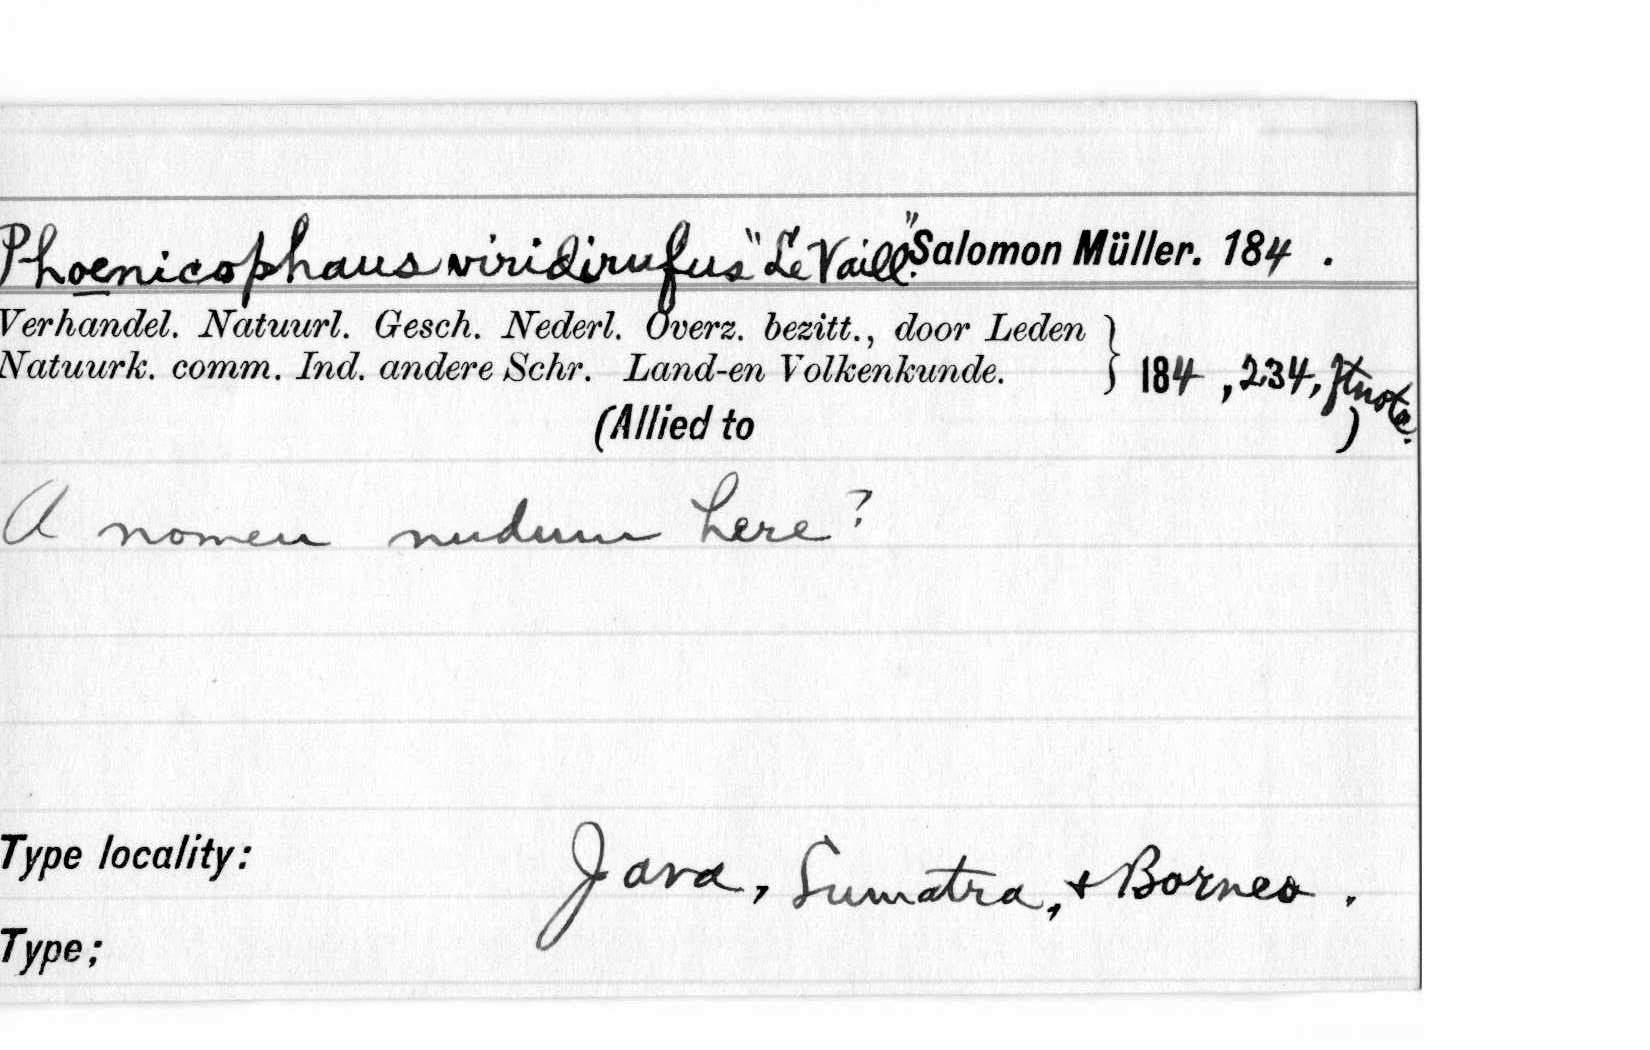 Phoenicophaus viridirufus "Le Vaill." Salomon Müller. 184 .
Verhandel. Natuurl. Gesch. Nederl. Overz. bezitt., door Leden
Natuurk. comm. Ind. andere Schr. Land-en Volkenkunde. } 184 , 234, ftnote.
(Allied to )
A nomen nudum here?
Type locality: Java, Sumatra, & Borneo .
Type;